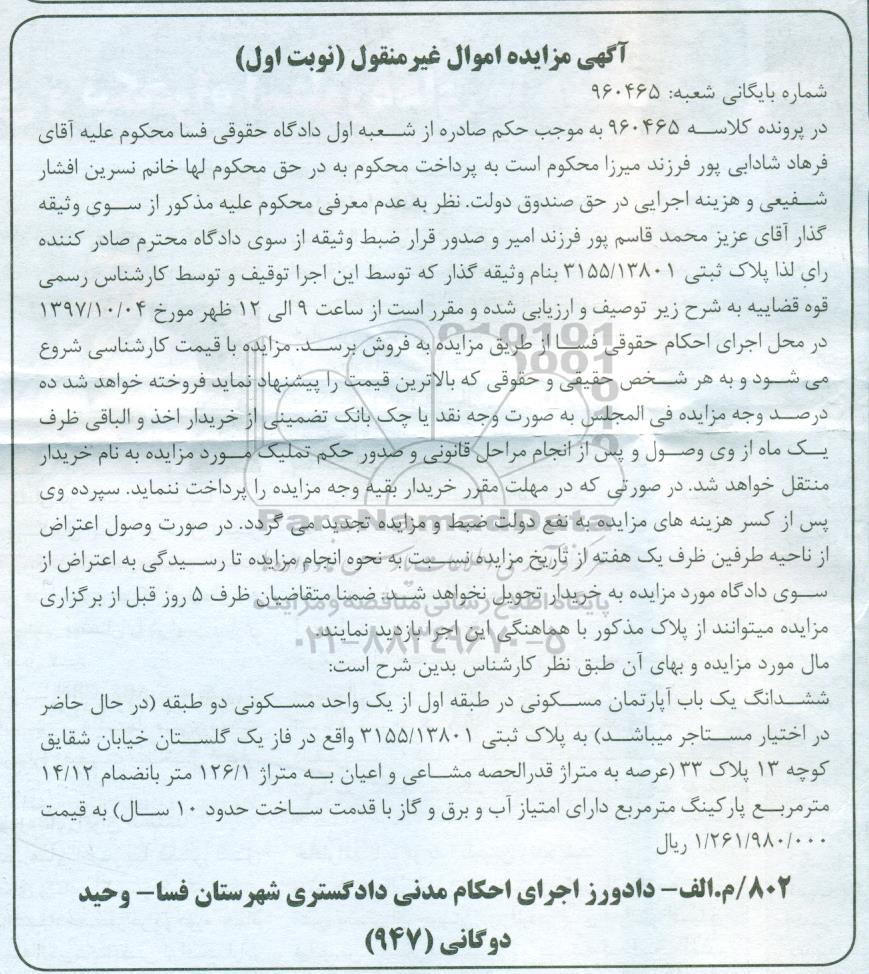 آگهی مزایده اموال غیرمنقول (نوبت اول)
شماره بایگانی شعبه: ۹۶۰۴۶۵
در پرونده کلاسه ۹۶۰۴۶۵ به موجب حکم صادره از شعبه اول دادگاه حقوقی فسا محکوم علیه آقای
فرهاد شادابی پور فرزند میرزا محکوم است به پرداخت محکوم به در حق محکوم لها خانم نسرین افشار
شفیعی و هزینه اجرایی در حق صندوق دولت. نظر به عدم معرفی محکوم علیه مذکور از سوی وثیقه
گذار آقای عزیز محمد قاسم پور فرزند امیر و صدور قرار ضبط وثیقه از سوی دادگاه محترم صادر کننده
رای لذا پلاک ثبتی ۳۱۵۵/۱۳۸۰۱ بنام وثیقه گذار که توسط این اجرا توقیف و توسط کارشناس رسمی
قوه قضاییه به شرح زیر توصیف و ارزیابی شده و مقرر است از ساعت ۹ الی ۱۲ ظهر مورخ ۱۳۹۷/۱۰/۰۴
در محل اجرای احکام حقوقی فسا از طریق مزایده به فروش برسد. مزایده با قیمت کارشناسی شروع
می شود و به هر شخص حقیقی و حقوقی که بالاترین قیمت را پیشنهاد نماید فروخته خواهد شد ده
درصد وجه مزایده فی المجلس به صورت وجه نقد یا چک بانک تضمینی از خریدار اخذ و الباقی ظرف
یک ماه از وی وصول و پس از انجام مراحل قانونی و صدور حکم تملیک مورد مزایده به نام خریدار
منتقل خواهد شد. در صورتی که در مهلت مقرر خریدار بقیه وجه مزایده را پرداخت ننماید. سپرده وی
پس از کسر هزینه های مزایده به نفع دولت ضبط و مزایده تجدید می گردد. در صورت وصول اعتراض
از ناحیه طرفین ظرف یک هفته از تاریخ مزایده نسبت به نحوه انجام مزایده تا رسیدگی به اعتراض از
سوی دادگاه مورد مزایده به خریدار تحویل نخواهد شد. ضمنا متقاضیان ظرف ۵ روز قبل از برگزاری
مزایده میتوانند از پلاک مذکور با هماهنگی این اجرا بازدید نمایند.
مال مورد مزایده و بهای آن طبق نظر کارشناس بدین شرح است:
ششدانگ یک باب آپارتمان مسکونی در طبقه اول از یک واحد مسکونی دو طبقه (در حال حاضر
در اختیار مستاجر میباشد) به پلاک ثبتی ۳۱۵۵/۱۳۸۰۱ واقع در فاز یک گلستان خیابان شقایق
کوچه ۱۳ پلاک ۳۳ (عرصه به متراژ قدرالحصه مشاعی و اعیان به متراژ ۱۲۶/۱ متر بانضمام ۱۴/۱۲
مترمربع پارکینگ مترمربع دارای امتیاز آب و برق و گاز با قدمت ساخت حدود ۱۰ سال) به قیمت
۱/۲۶۱/۹۸۰/۰۰۰ ریال
۸۰۲/م.الف- دادورز اجرای احکام مدنی دادگستری شهرستان فسا- وحید
دوگانی (۹۴۷)
ParsNamadData
پایگاه اطلاع رسانی مناقصه و مزایده
۰۲۱-۸۸۳۴۹۶۷۰-۵